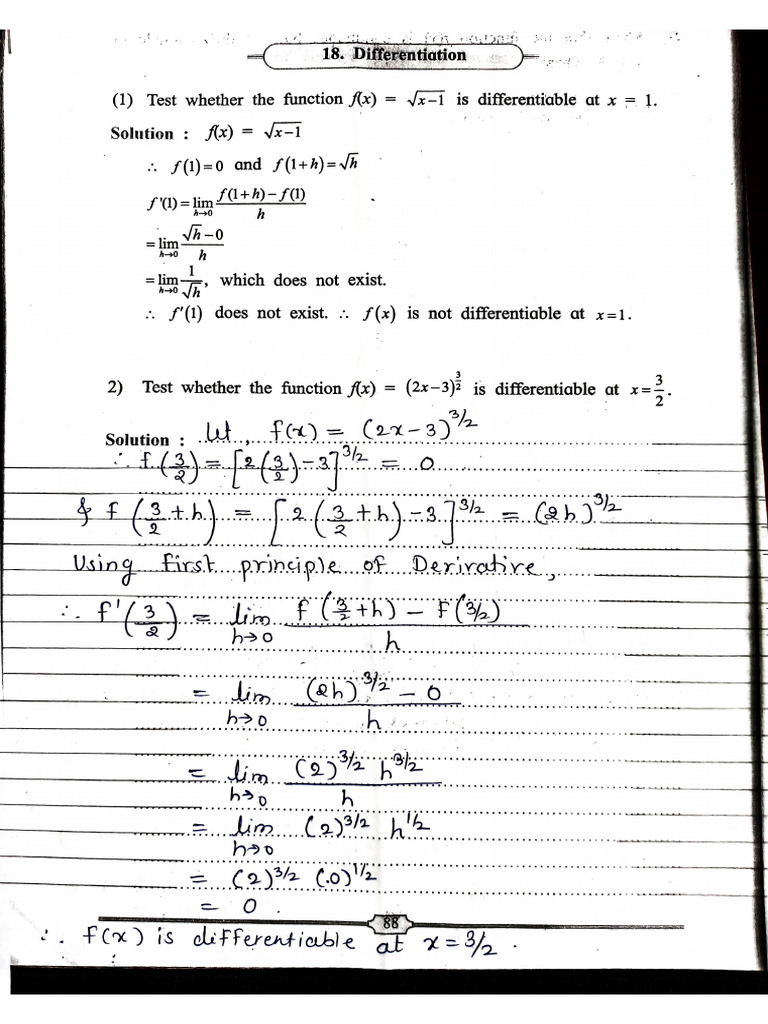 18. Differentiation
(1) Test whether the function f(x) = √x−1 is differentiable at x = 1.
Solution : f(x) = √x−1
∴ f(1)=0 and f(1+h)=√h
f'(1)=lim h→0 f(1+h)−f(1) / h
=lim h→0 √h−0 / h
=lim h→0 1/√h, which does not exist.
∴ f'(1) does not exist. ∴ f(x) is not differentiable at x=1.
2) Test whether the function f(x) = (2x−3)^3/2 is differentiable at x=3/2.
Solution : Let, f(x) = (2x−3)^3/2
∴ f(3/2) = [2(3/2)−3]^3/2 = 0
& f(3/2+h) = [2(3/2+h)−3]^3/2 = (2h)^3/2
Using first principle of Derivative,
∴ f'(3/2) = lim h→0 f(3/2+h) − f(3/2) / h
= lim h→0 (2h)^3/2 − 0 / h
= lim h→0 (2)^3/2 h^3/2 / h
= lim h→0 (2)^3/2 h^1/2
= (2)^3/2 (0)^1/2
= 0.
88
∴ f(x) is differentiable at x = 3/2.